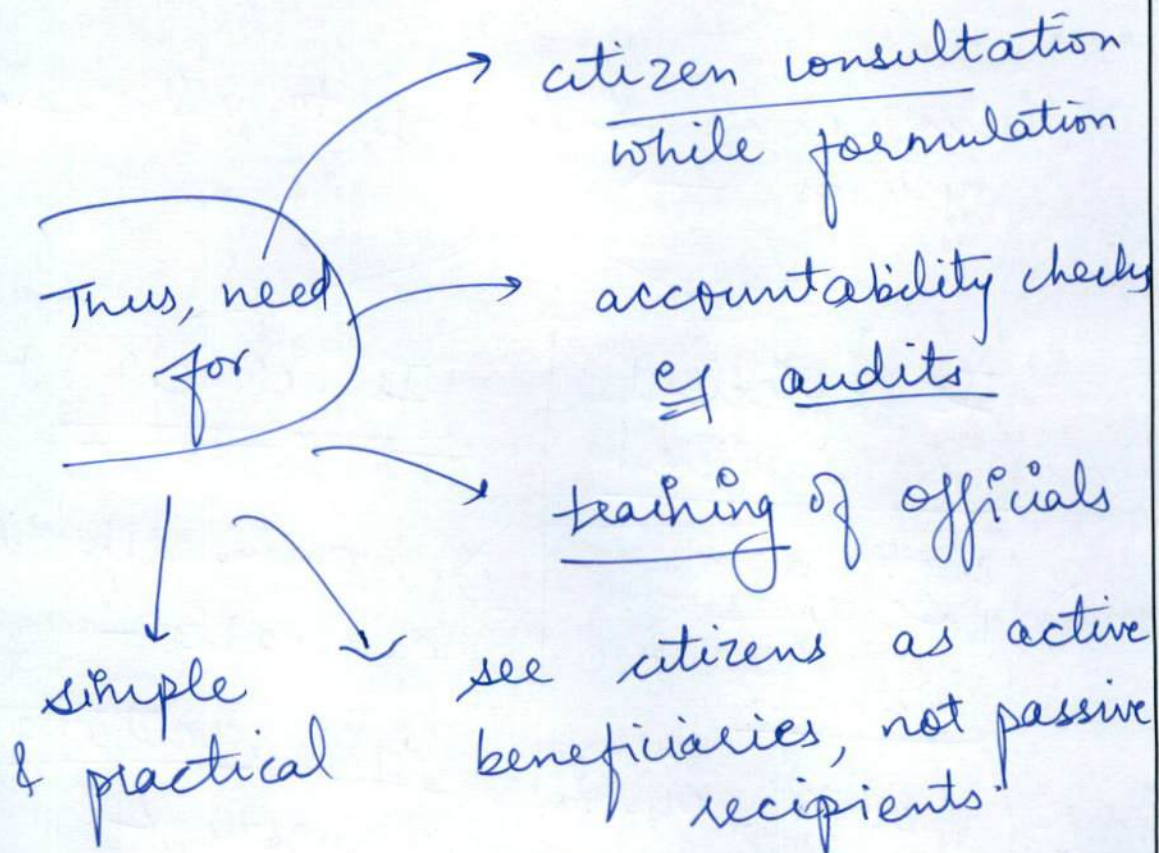 citizen consultation
while formulation
Thus, need
for
accountability checks
eg audits
training of officials
see citizens as active
beneficiaries, not passive
recipients.
simple
& practical